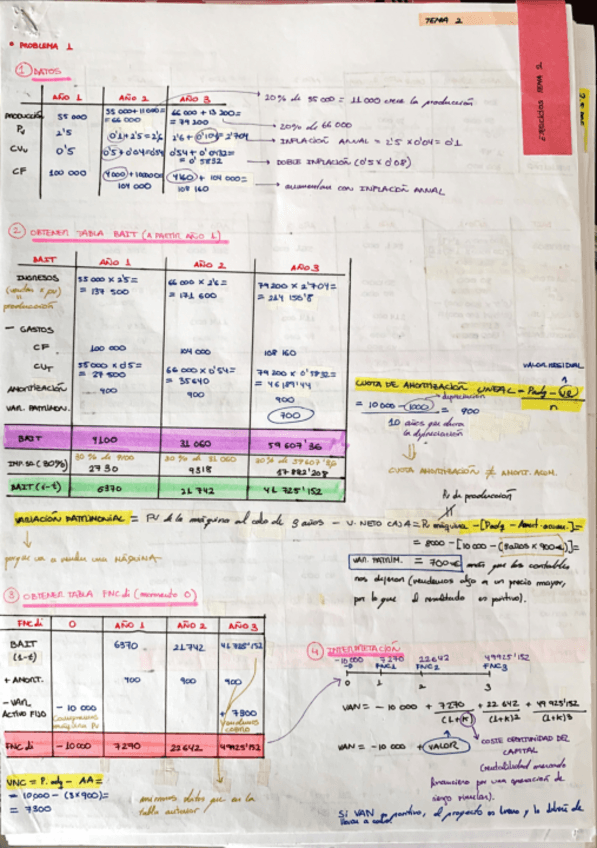 TEMA 2
EJERCICIOS TEMA 2
• PROBLEMA 1
① DATOS
AÑO 1 AÑO 2 AÑO 3
PRODUCCIÓN 55 000 55 000+11 000= 66 000 + 13 200=
= 66 000 = 79 200
Pv 2'5 0'1+2'5=2'6 2'6+0'104=2'704
CVu 0'5 0'5+0'04=0'54 0'54+0'0432=
= 0'5832
CF 100 000 4000+100000 4160 + 104 000=
104 000 108 160
20% de 55 000 = 11 000 crece la producción
20% de 66 000
INFLACIÓN ANUAL = 2'5 x 0'04 = 0'1
DOBLE INFLACIÓN (0'5 x 0'08)
aumentan con INFLACIÓN ANUAL
② OBTENER TABLA BAIT (A PARTIR AÑO 1)
BAIT AÑO 1 AÑO 2 AÑO 3
INGRESOS 55 000 x 2'5= 66 000 x 2'6= 79 200 x 2'704=
= 137 500 = 171 600 = 214 156'8
producción
- GASTOS
CF 100 000 104 000 108 160
CVT 55 000 x 0'5= 66 000 x 0'54= 79 200 x 0'5832=
= 27 500 = 35 640 = 46 189'44
AMORTIZACIÓN 900 900 900
VAR. PATRIMON. 700
BAIT 9100 31 060 59 607'36
IMP. SC (30%) 30% de 9100 30% de 31 060 30% de 59 607'36
2730 9318 17 882'208
BAIT (1-t) 6370 21 742 41 725'152
VALOR RESIDUAL
CUOTA DE AMORTIZACIÓN LINEAL = Padq - VR
n
= 10 000 - 1000 = 900
depreciación
10 años que dura
la depreciación
CUOTA AMORTIZACIÓN ≠ AMORT. ACUM.
Pv de producción
VARIACIÓN PATRIMONIAL = PV de la máquina al cabo de 3 años - V. NETO CAJA = Pv máquina - [Padq - Amort. acum.]=
= 8000 - [10 000 - (3 años x 900€)]=
porque va a vender una MÁQUINA
VAR. PATRIM. = 700€ más que los contables
nos dejaron (vendemos algo a un precio mayor,
por lo que el resultado es positivo).
③ OBTENER TABLA FNC di (momento 0)
FNC di 0 AÑO 1 AÑO 2 AÑO 3
BAIT 6370 21 742 41 725'152
(1-t)
+ AMORT. 900 900 900
- VAR.
ACTIVO FIJO - 10 000 + 7300
Compramos
máquina Pv
Vendemos
FNC di -10000 7270 22642 49925'152
VNC = P. adq - AA =
= 10000 - (3x900)=
= 7300
mismos datos que en la
tabla anterior
④ INTERPRETACIÓN
-10 000 7270 22642 49925'152
FNC1 FNC2 FNC3
0 1 2 3
VAN = - 10 000 + 7270 + 22 642 + 49 925'152
(1+k) (1+k)2 (1+k)3
VAN = -10 000 + VALOR
COSTE OPORTUNIDAD DEL
CAPITAL
(rentabilidad mercado
financiero por una operación de
riesgo similar).
Si VAN es positivo, el proyecto es bueno y lo debería de
llevar a cabo